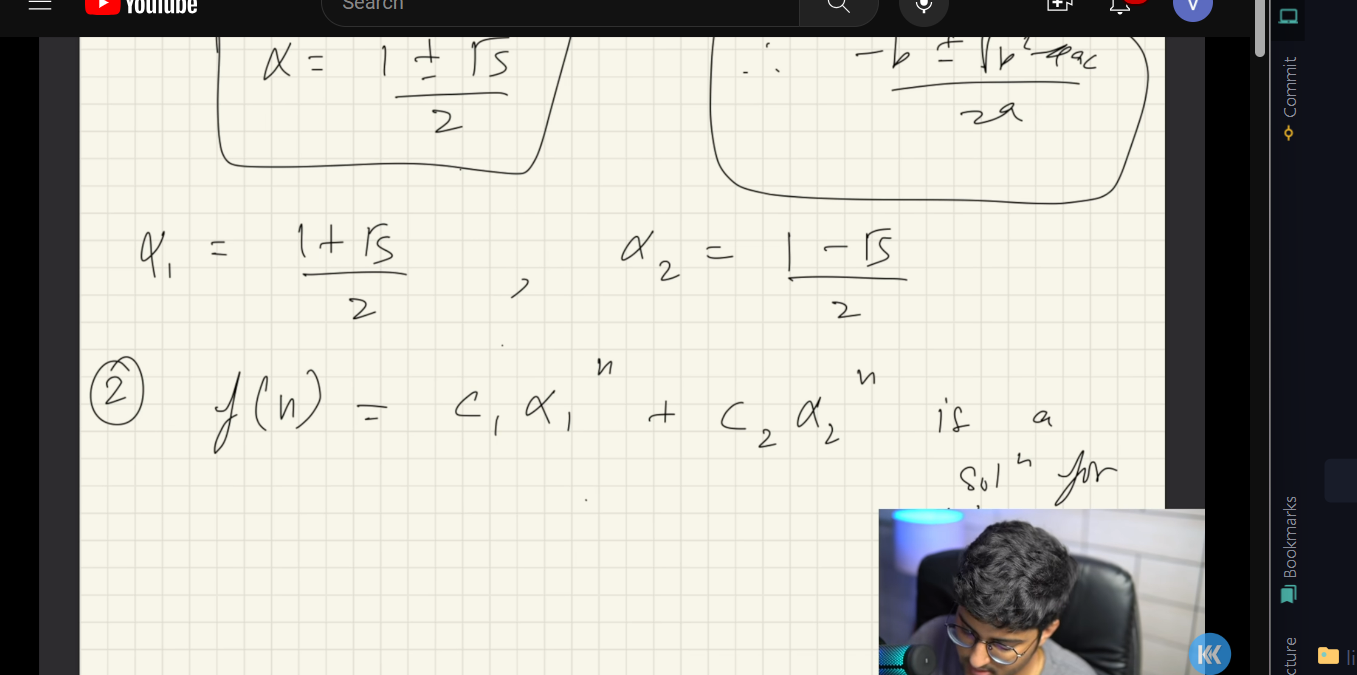 YouTube
Search
V
α = (1 ± √5)/2
∴ (-b ± √(b² - 4ac))/2a
α₁ = (1 + √5)/2 , α₂ = (1 - √5)/2
② f(n) = c₁ α₁ⁿ + c₂ α₂ⁿ is a
solⁿ for
Commit
Bookmarks
cture
li